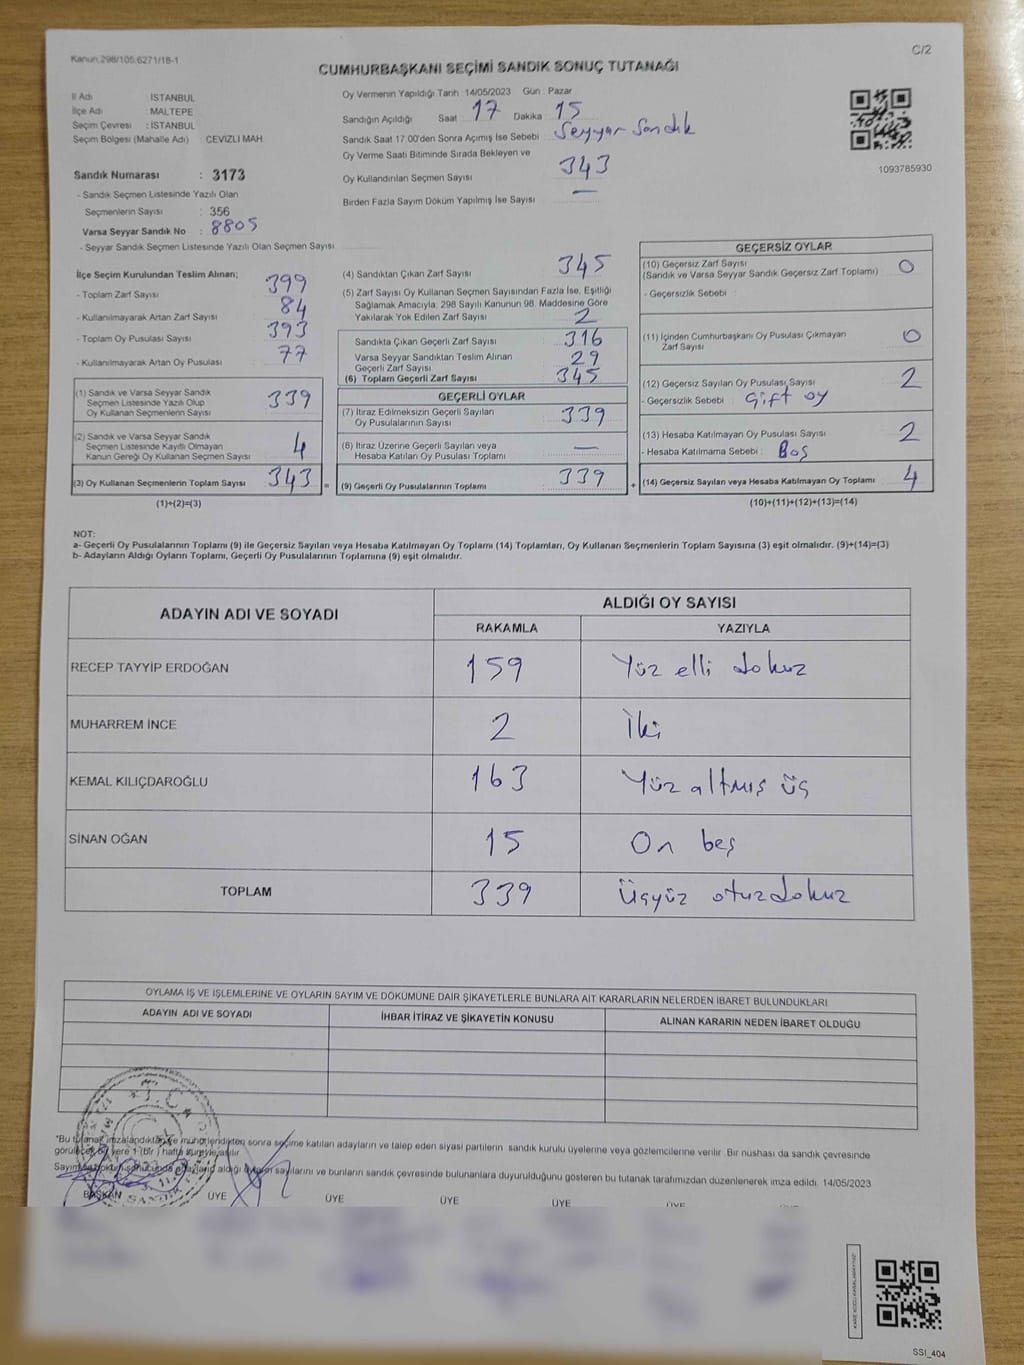 Kanun:298/105,6271/18-1
C/2
CUMHURBAŞKANI SEÇİMİ SANDIK SONUÇ TUTANAĞI
İl Adı İSTANBUL
İlçe Adı MALTEPE
Seçim Çevresi : İSTANBUL
Seçim Bölgesi (Mahalle Adı) : CEVİZLİ MAH
Sandık Numarası : 3173
- Sandık Seçmen Listesinde Yazılı Olan
Seçmenlerin Sayısı : 356
Varsa Seyyar Sandık No : 8805
- Seyyar Sandık Seçmen Listesinde Yazılı Olan Seçmen Sayısı
Oy Vermenin Yapıldığı Tarih : 14/05/2023 Gün : Pazar
Sandığın Açıldığı Saat 17 Dakika 15
Sandık Saat 17:00'den Sonra Açılmış İse Sebebi Seyyar Sandık
Oy Verme Saati Bitiminde Sırada Bekleyen ve
Oy Kullandırılan Seçmen Sayısı 343
Birden Fazla Sayım Döküm Yapılmış İse Sayısı —
1093785930
İlçe Seçim Kurulundan Teslim Alınan;
- Toplam Zarf Sayısı 399
- Kullanılmayarak Artan Zarf Sayısı 84
- Toplam Oy Pusulası Sayısı 393
- Kullanılmayarak Artan Oy Pusulası 77
(1) Sandık ve Varsa Seyyar Sandık
Seçmen Listesinde Yazılı Olup
Oy Kullanan Seçmenlerin Sayısı 339
(2) Sandık ve Varsa Seyyar Sandık
Seçmen Listesinde Kayıtlı Olmayan
Kanun Gereği Oy Kullanan Seçmen Sayısı 4
(3) Oy Kullanan Seçmenlerin Toplam Sayısı 343 =
(1)+(2)=(3)
(4) Sandıktan Çıkan Zarf Sayısı 345
(5) Zarf Sayısı Oy Kullanan Seçmen Sayısından Fazla İse, Eşitliği
Sağlamak Amacıyla, 298 Sayılı Kanunun 98. Maddesine Göre
Yakılarak Yok Edilen Zarf Sayısı 2
Sandıkta Çıkan Geçerli Zarf Sayısı 316
Varsa Seyyar Sandıktan Teslim Alınan
Geçerli Zarf Sayısı 29
(6) Toplam Geçerli Zarf Sayısı 345
GEÇERLİ OYLAR
(7) İtiraz Edilmeksizin Geçerli Sayılan
Oy Pusulalarının Sayısı 339
(8) İtiraz Üzerine Geçerli Sayılan veya
Hesaba Katılan Oy Pusulası Toplamı —
(9) Geçerli Oy Pusulalarının Toplamı 339 +
GEÇERSİZ OYLAR
(10) Geçersiz Zarf Sayısı
(Sandık ve Varsa Seyyar Sandık Geçersiz Zarf Toplamı) 0
- Geçersizlik Sebebi :
(11) İçinden Cumhurbaşkanı Oy Pusulası Çıkmayan
Zarf Sayısı 0
(12) Geçersiz Sayılan Oy Pusulası Sayısı 2
- Geçersizlik Sebebi : Çift oy
(13) Hesaba Katılmayan Oy Pusulası Sayısı 2
- Hesaba Katılmama Sebebi : Boş
(14) Geçersiz Sayılan veya Hesaba Katılmayan Oy Toplamı 4
(10)+(11)+(12)+(13)=(14)
NOT:
a- Geçerli Oy Pusulalarının Toplamı (9) ile Geçersiz Sayılan veya Hesaba Katılmayan Oy Toplamı (14) Toplamları, Oy Kullanan Seçmenlerin Toplam Sayısına (3) eşit olmalıdır. (9)+(14)=(3)
b- Adayların Aldığı Oyların Toplamı, Geçerli Oy Pusulalarının Toplamına (9) eşit olmalıdır.
ADAYIN ADI VE SOYADI
ALDIĞI OY SAYISI
RAKAMLA YAZIYLA
RECEP TAYYİP ERDOĞAN 159 Yüz elli dokuz
MUHARREM İNCE 2 İki
KEMAL KILIÇDAROĞLU 163 Yüz altmış üç
SİNAN OĞAN 15 On beş
TOPLAM 339 Üçyüz otuzdokuz
OYLAMA İŞ VE İŞLEMLERİNE VE OYLARIN SAYIM VE DÖKÜMÜNE DAİR ŞİKAYETLERLE BUNLARA AİT KARARLARIN NELERDEN İBARET BULUNDUKLARI
ADAYIN ADI VE SOYADI İHBAR İTİRAZ VE ŞİKAYETİN KONUSU ALINAN KARARIN NEDEN İBARET OLDUĞU
*Bu tutanak imzalandıktan ve mühürlendikten sonra seçime katılan adayların ve talep eden siyasi partilerin sandık kurulu üyelerine veya gözlemcilerine verilir. Bir nüshası da sandık çevresinde
görülecek bir yere 1 (bir) hafta süreyle asılır
Sayım ve döküm sonucunda adayların aldığı oyların sayılarını ve bunların sandık çevresinde bulunanlara duyurulduğunu gösteren bu tutanak tarafımızdan düzenlenerek imza edildi. 14/05/2023
BAŞKAN ÜYE ÜYE ÜYE ÜYE ÜYE
SSI_404